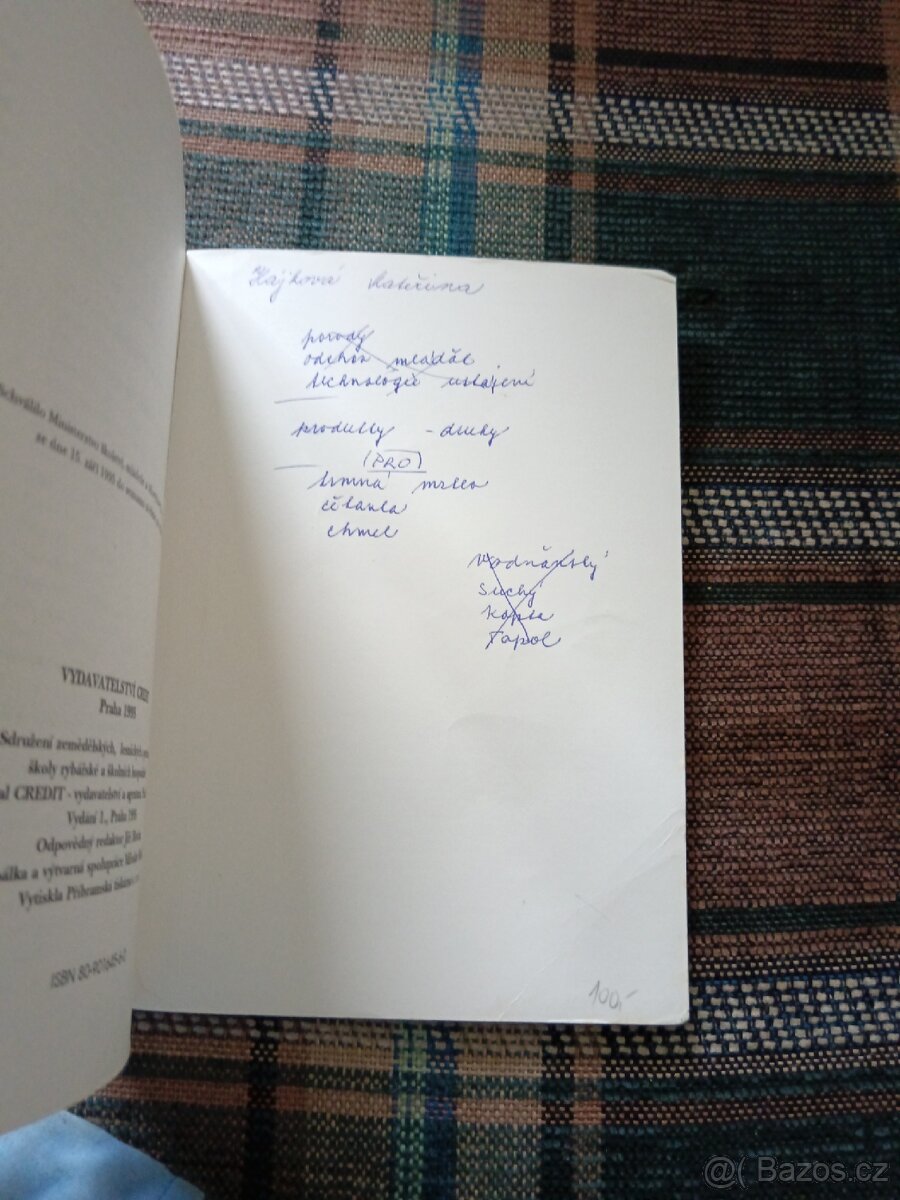 Schválilo Ministerstvo školství, mládeže a
ze dne 15. září 1995 do
VYDAVATELSTVÍ
Praha 1995
Sdružení zemědělských, lesnických
školy rybářské a školních
CREDIT - vydavatelství a
Vydání 1., Praha
Odpovědný redaktor Jiří
a výtvarná spolupráce
Vytiskla Příbramská
ISBN
Hájková Kateřina
porody
odchov mláďat
technologie ustájení
produkty - druhy
(PRO)
krmná mrkev
čekanka
chmel
Vodňanský
Suchý
Kopta
Topol
100,-
@( Bazos.cz